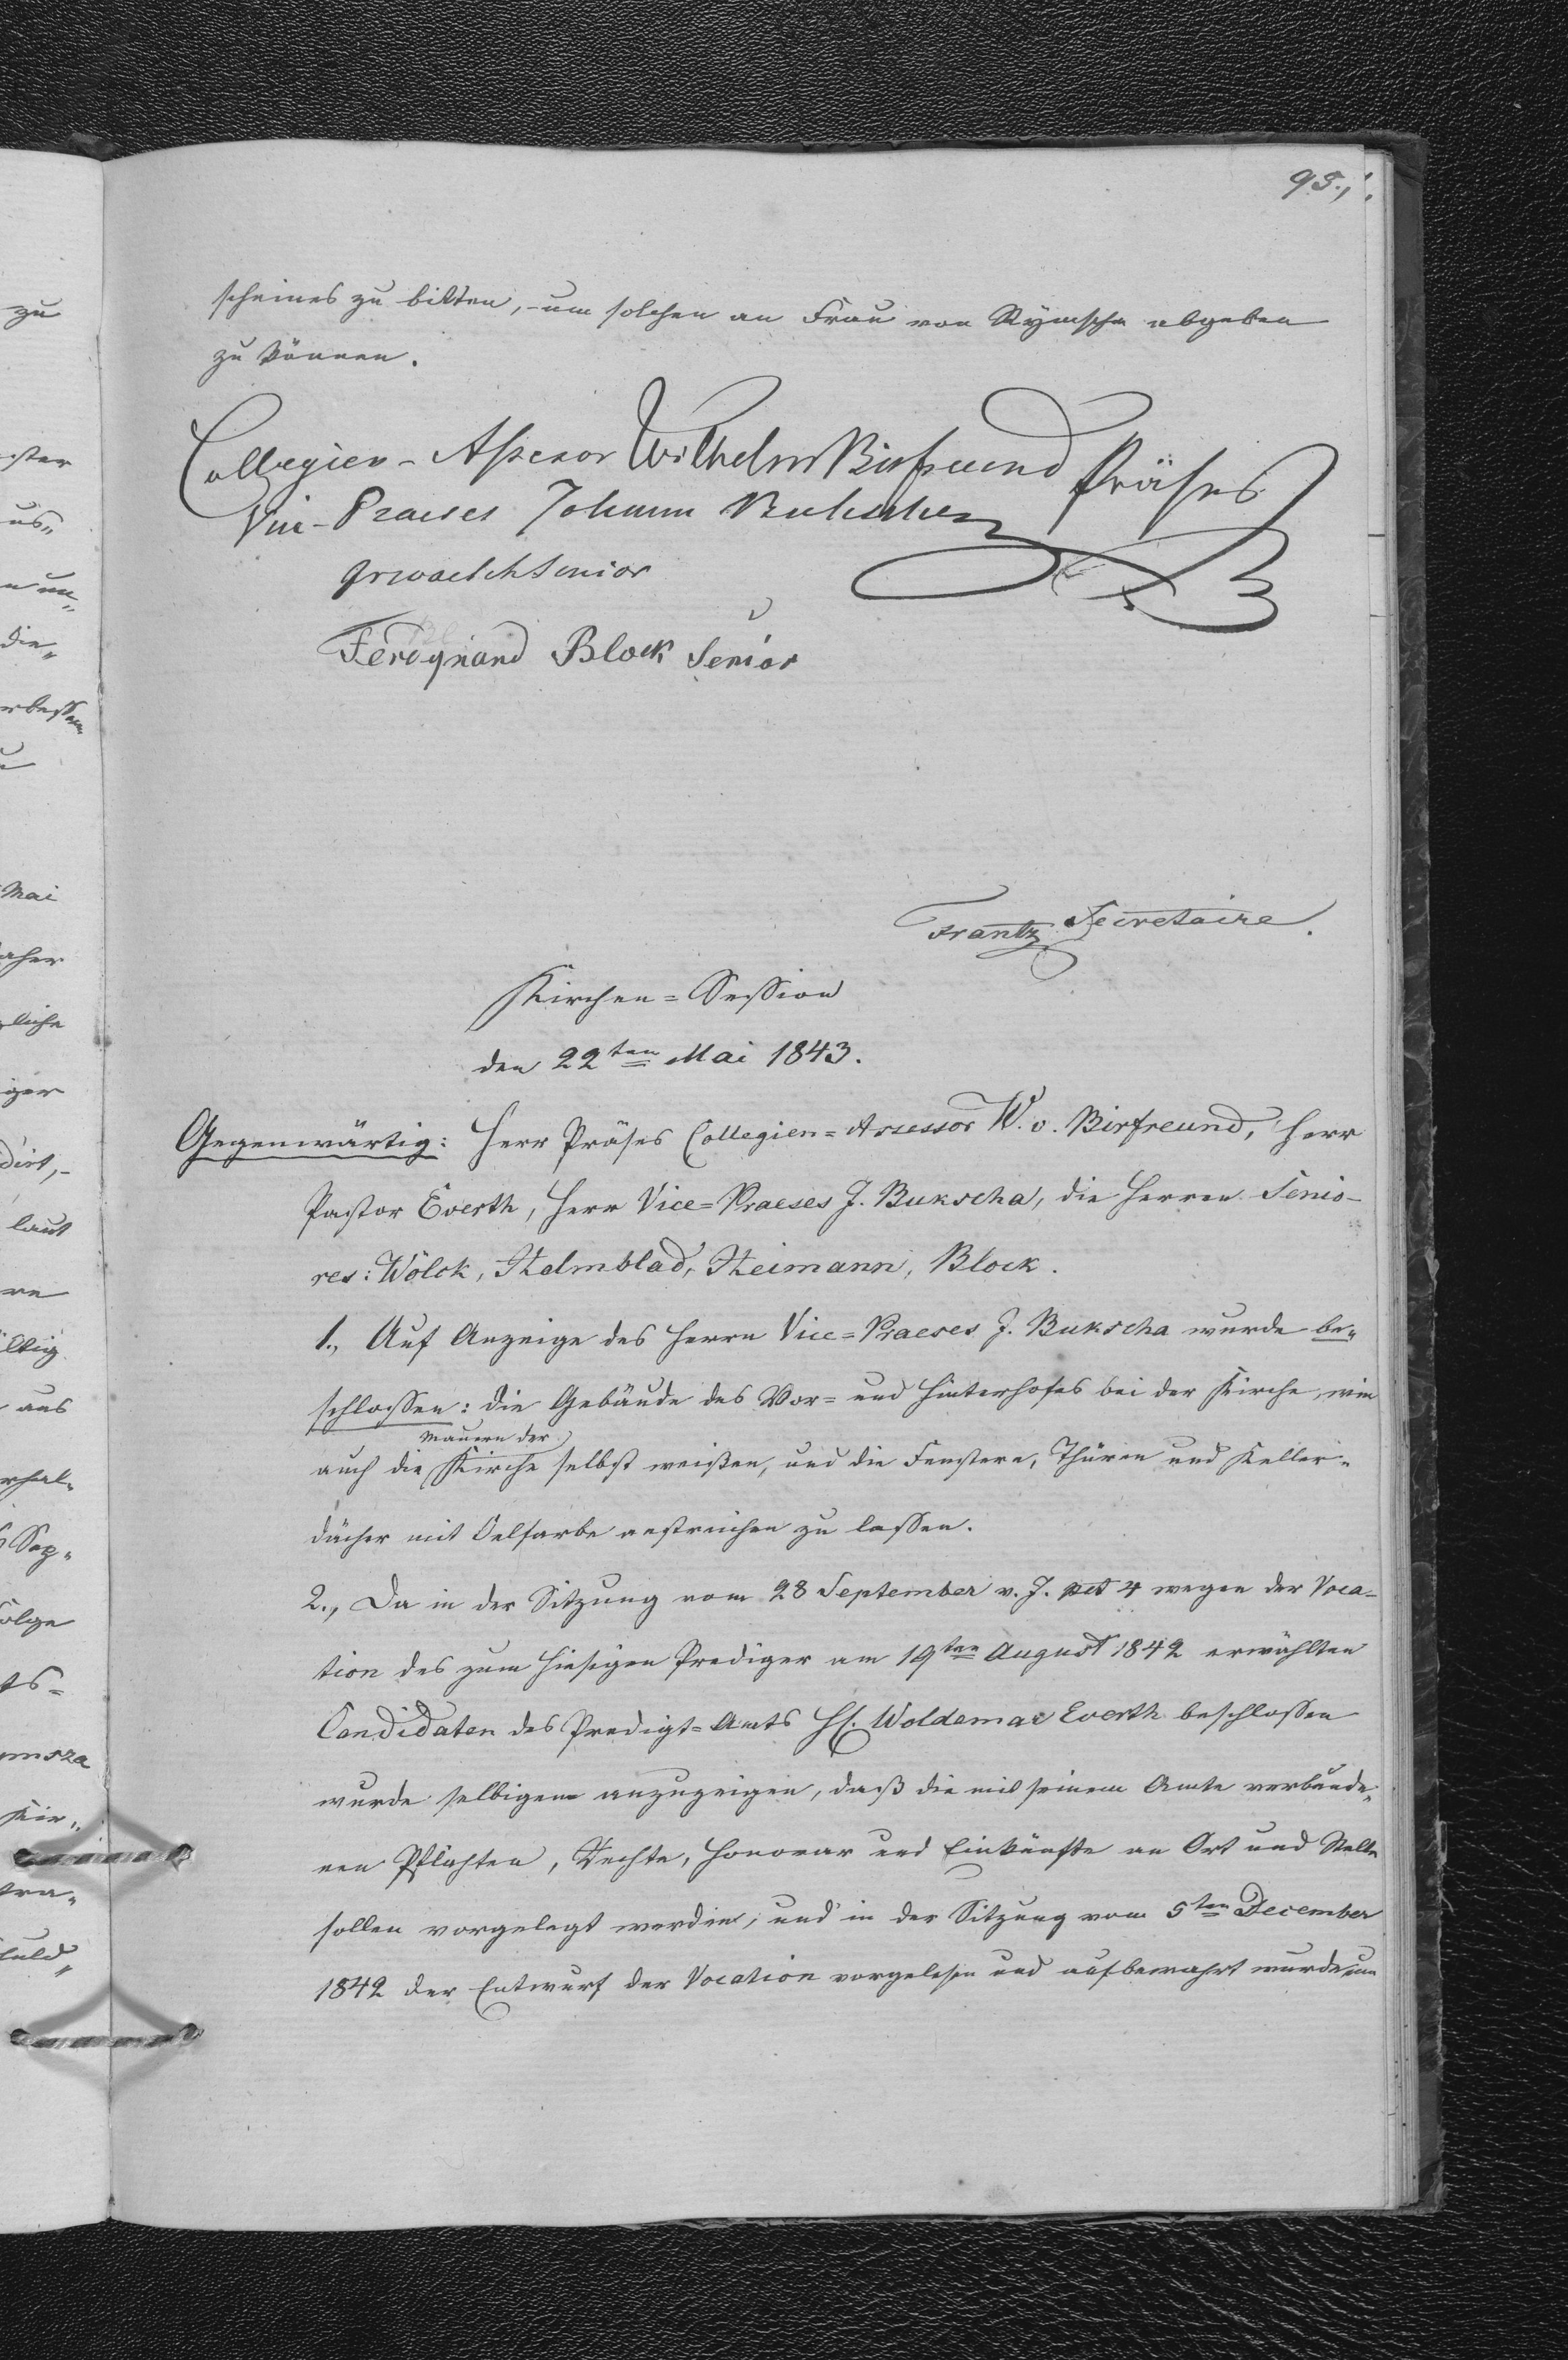 95.,
scheines zu bitten, - um solchen an Frau von Rymscha abgeben
zu können.
Collegien-Assessor Wilhelm Birfreund Präses
Vice-Praeses Johann Bukscha
Senior
Ferdynand Block Senior
Frantz Secretaire.
Kirchen=Session
den 22ten Mai 1843.
Gegenwärtig: Herr Präses Collegien=Assessor W. v. Birfreund, Herr
Pastor Everth, Herr Vice=Praeses J. Bukscha, die Herren Senio-
res: Wölck, Holmblad, Heimann, Block.
1., Auf Anzeige des Herrn Vice=Praeses J. Bukscha wurde be-
schlossen: die Gebäude des Vor= und Hinterhofes bei der Kirche, wie
Mauern der
auch die Kirche selbst weißen, und die Fenstern, Thüren und Keller-
dächer mit Oelfarbe anstreichen zu lassen.
2., Da in der Sitzung vom 28 September v. J. pct 4 wegen der Voca-
tion des zum hiesigen Prediger am 19ten August 1842 erwählten
Candidaten des Predigt=Amts H. Woldemar Everth beschlossen
wurde selbigem anzuzeigen, daß die mit seinem Amte verbunde-
nen Pflichten, Rechte, Honorar und Einkünfte an Ort und Stelle
sollen vorgelegt werden, und in der Sitzung vom 5ten December
1842 der Entwurf der Vocation vorgelesen und aufbewahrt wurde um
zu
Mai
laut
aus